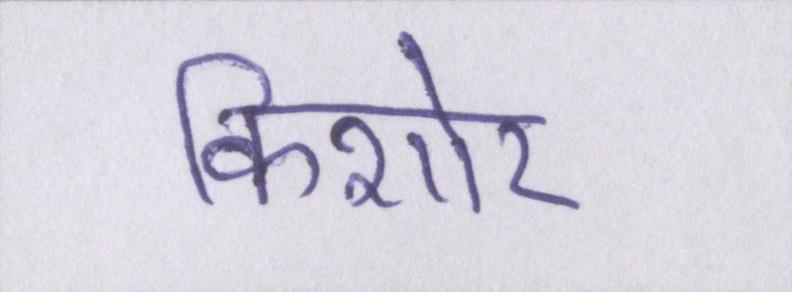 किशोर